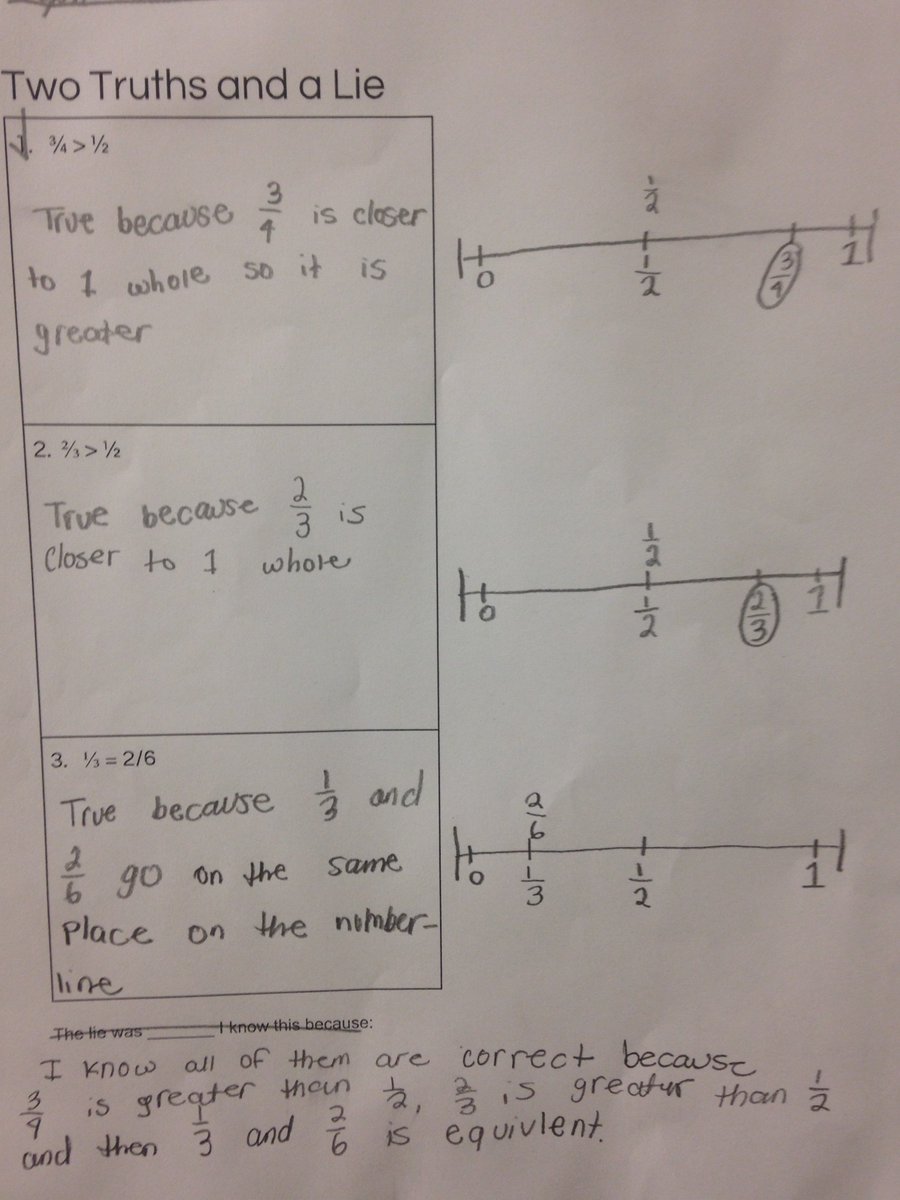 Two Truths and a Lie
1. ¾ > ½
True because 3/4 is closer
to 1 whole so it is
greater
1/2
0 1/2 3/4 1
2. ⅔ > ½
True because 2/3 is
Closer to 1 whole
1/2
0 1/2 2/3 1
3. ⅓ = 2/6
True because 1/3 and
2/6 go on the same
Place on the number-
line
2/6
0 1/3 1/2 1
The lie was ______ I know this because:
I know all of them are correct because
3/4 is greater than 1/2, 2/3 is greatur than 1/2
and then 1/3 and 2/6 is equivlent.